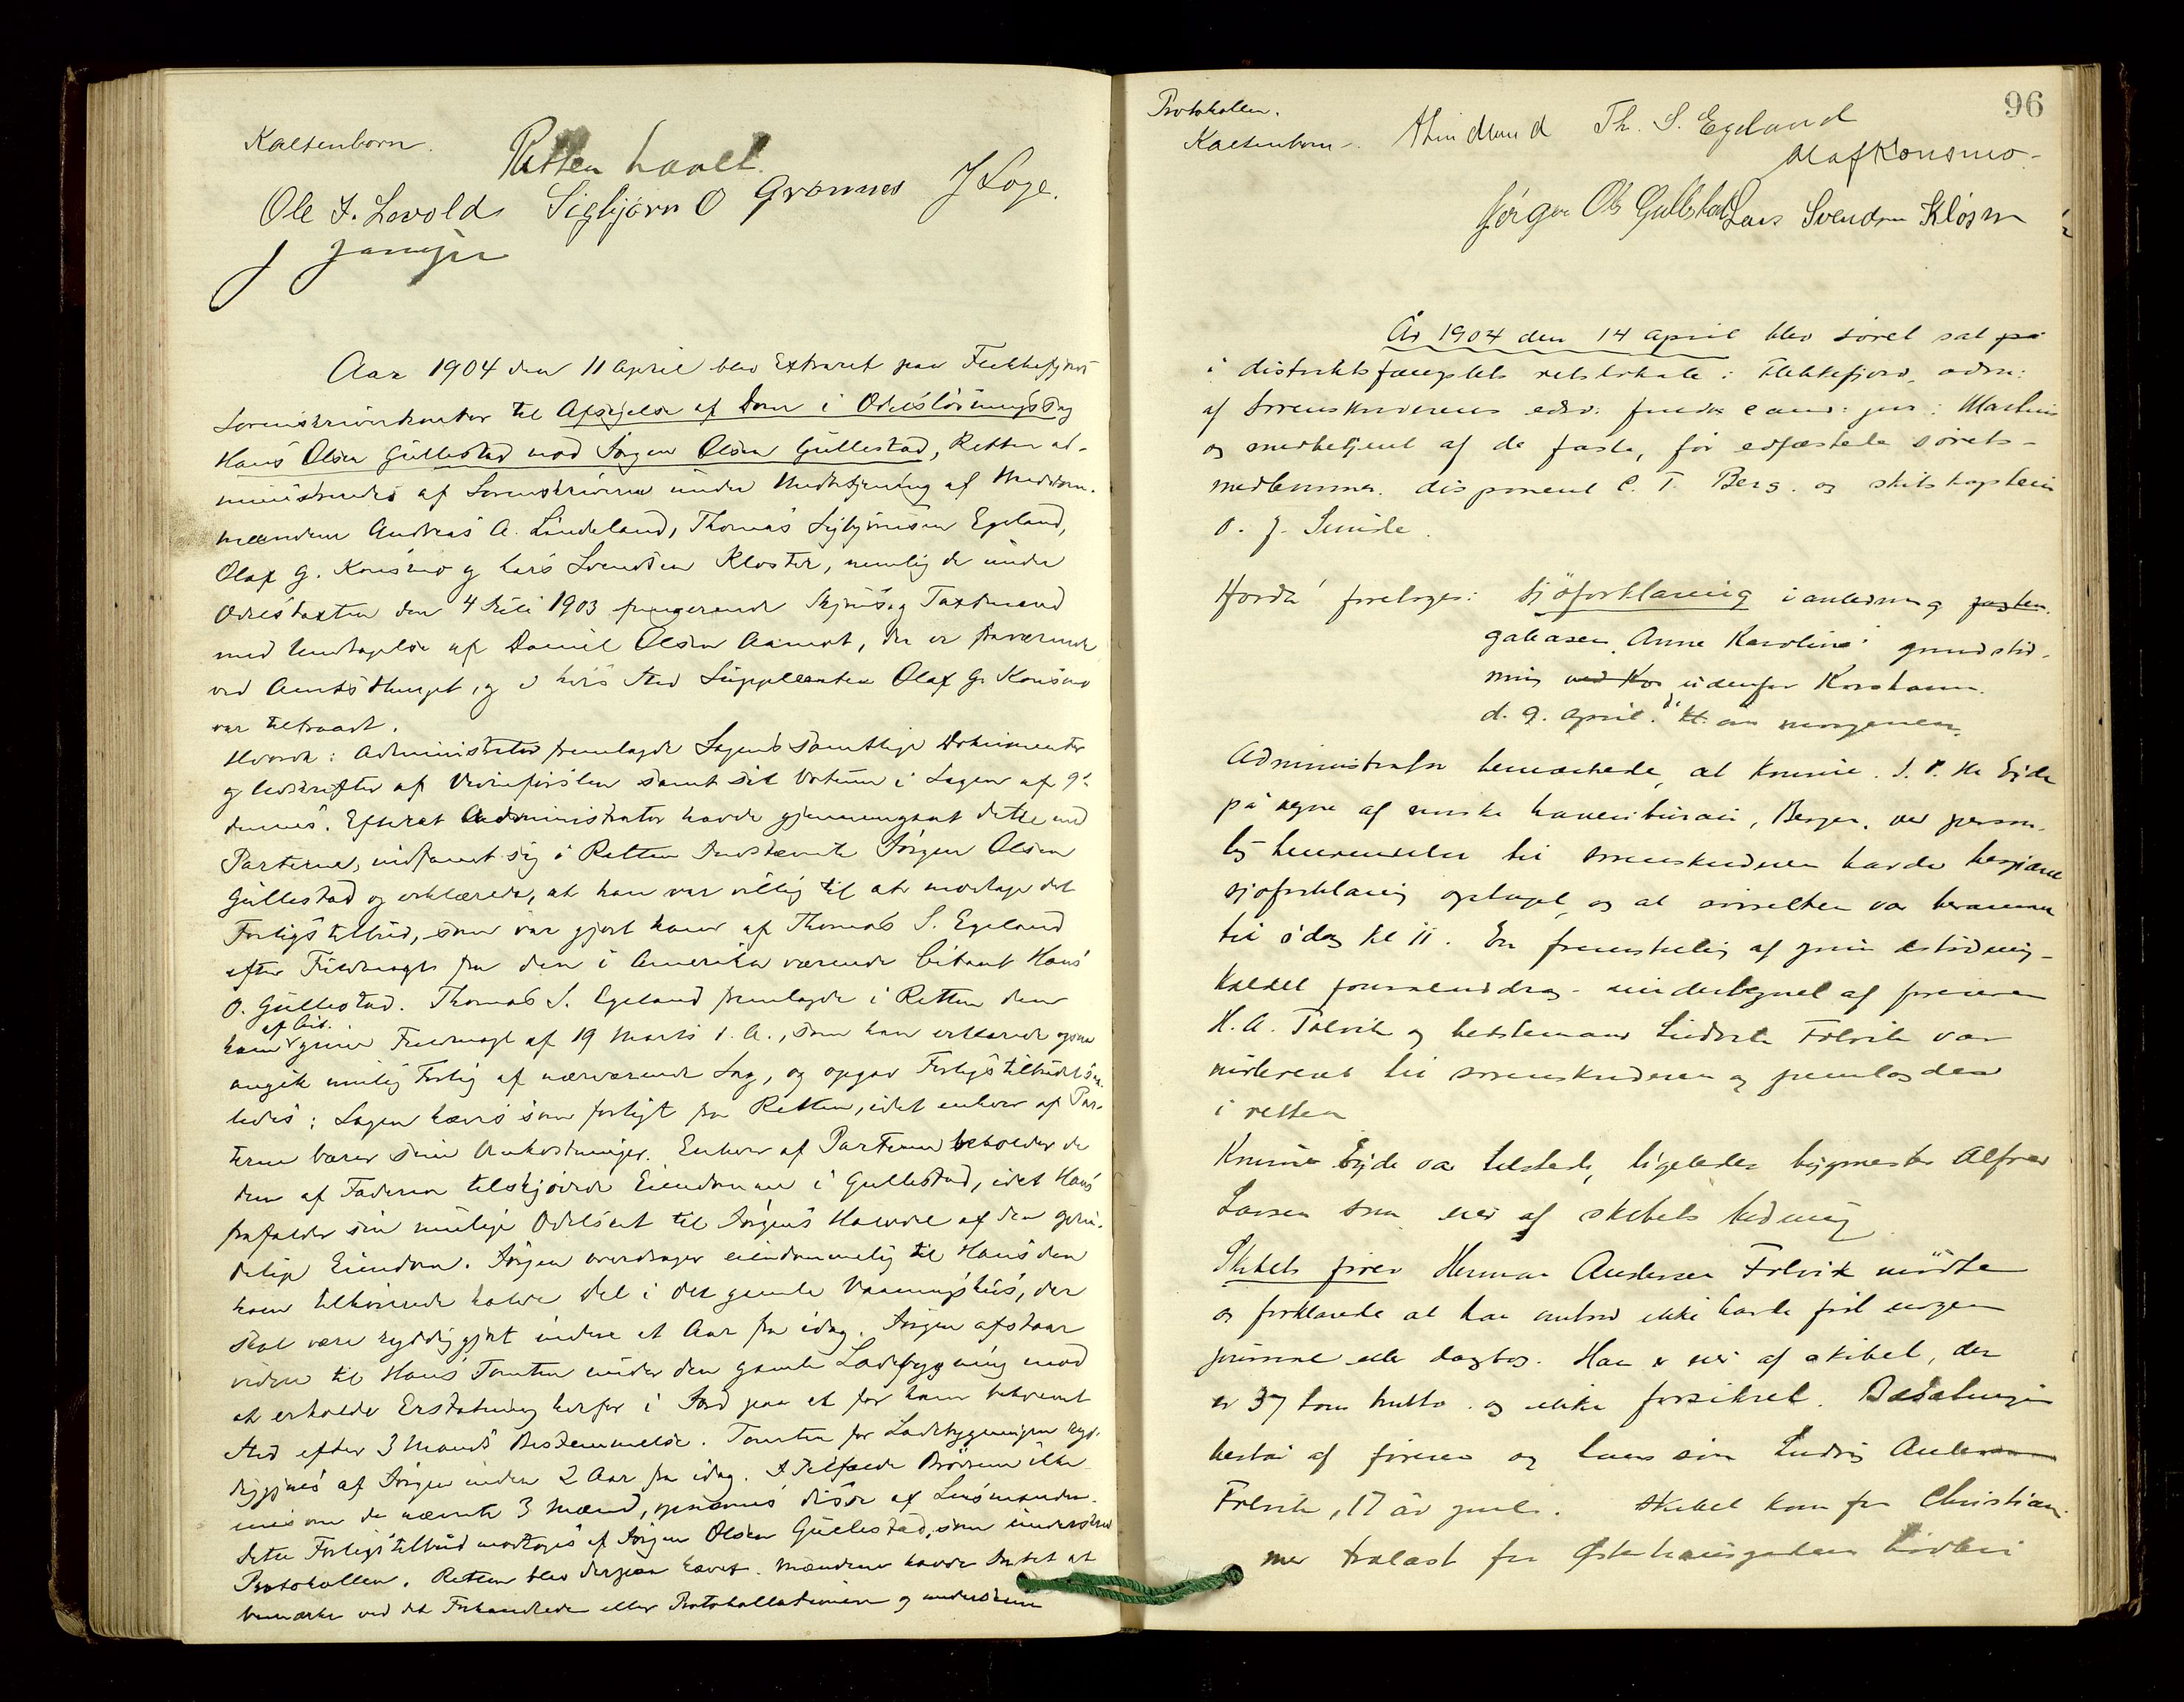 Kaltenborn.
Retten hævet.
Ole T. Lovold Sigbjørn O Grønnes J Loge.
J
Aar 1904 den 11 April blev Extraret paa Flekkefjords
Sorenskriverkontor til Afsigelse af Dom i Odelsløsningssag
Hans Olsen Gullestad mod Jørgen Olsen Gullestad, Retten ad-
ministreredes af Sorenskriveren under Medbetjening af Meddom-
mændene Andreas A. Lindeland, Thomas Sigbjørnsen Egeland,
Olaf G. Konsmo og Lars Svendsen Kloster, nemlig de under
Odelstaxten den 4 Juli 1903 fungerende Skjøns og Taxtmænd
med Undtagelse af Daniel Olsen Aamot, der er fraværende
ved Amtsthinget, og i hvis Sted Suppleanten Olaf G. Konsmo
var tiltraadt.
Hvorda: Administrator fremlagde Sagens samtlige Dokumenter
og Udskrifter af Vidneførslen samt sit Votum i Sagen af 9de
dennes. Efterat Administrator havde gjennemgaaet dette med
Parterne, indfandt sig i Retten Indstævnte Jørgen Olsen
Gullestad og erklærede, at han var villig til at modtage det
Forligstilbud, som var gjort ham af Thomas S. Egeland
efter Fuldmagt fra den i Amerika værende Citant Hans
O. Gullestad. Thomas S. Egeland fremlagde i Retten den
af Cit.
ham givne Fuldmagt af 19 Marts d. A., som han erklærede ogsaa
angik mulig Forlig af nærværende Sag, og opgav Forligstilbudet saa-
ledes: Sagen hæves som forligt fra Retten, idet enhver af Par-
terne bærer sine Omkostninger. Enhver af Parterne beholder de
den af Faderen tilskjødede Eiendomme i Gullestad, idet Hans
frafalder sin mulige Odelsret til Jørgens Halvdel af den
Eiendom. Jørgen overdrager eiendommelig til Hans den
ham tilhørende halve Del i det gamle Vaaningshus, der
skal være ryddiggjort inden et Aar fra idag. Jørgen afstaar
videre til Hans Tomten under den gamle Ladebygning mod
at erholde Erstatning herfor i Jord paa et for ham bekvemt
Sted efter 3 Mænds Bestemmelse. Tomten for Ladebygningen ryd-
diggjøres af Jørgen inden 2 Aar fra idag. I Tilfælde Brødrene ikke
enes om de nævnte 3 Mænd, opnævnes disse af Lensmanden.
Dette Forligstilbud modtoges af Jørgen Olsen Gullestad, som underskrev
Protokollen. Retten blev derpaa hævet. Mændene havde Intet at
bemærke ved det Forhandlede eller Protokollationen og underskrev
Protokollen.
Kaltenborn. Th. S. Egeland
96
Olaf Konsmo
Jørgen Ols Gullestad Lars Svendsen Kloster
År 1904 den 14 april blev søret sat på
i distriktsfængslets retslokale i Flekkefjord, adm:
af sorenskriverens edsv: fuldm cand: jur:
og medbetjent af de faste, før edfæstede sørets-
medlemmer disponent C. T. Berg og skibskaptein
O. J. Sunde.
Hvorda foretoges: Sjøforklaring i anledning jagten
galeasen "Anne Karoline" grundstød-
ning ved Kor udenfor Korshavn
d. 9. april kl. om morgenen.
Administrator bemærkede, at
på vegne af norske havaribureau, Bergen, ved person-
lig henvendelse til sorenskriveren havde begjæret
sjøforklaring optaget og at søretten var berammet
til idag kl 11. En fremstilling af grundstødning-
kaldet journaludrag - undertegnet af føreren
H. A. Folvik og bedstemand Ludvik Folvik var
indleveret til sorenskriveren og fremlagdes
i retten
Eyde var tilstede, ligeledes bygmester Alfred
Larsen som eier af skibets ladning
Skibets fører Herman Andersen Folvik mødte
og forklarede at han ombord ikke havde ført nogen
journal eller dagbog. Han er eier af skibet, der
er 37 tons brutto og ikke forsikret. Besætningen
bestod af føreren og hans søn Ludvig Andersen
Folvik, 17 år gml. Skibet kom fra Christian.
med trælast fra